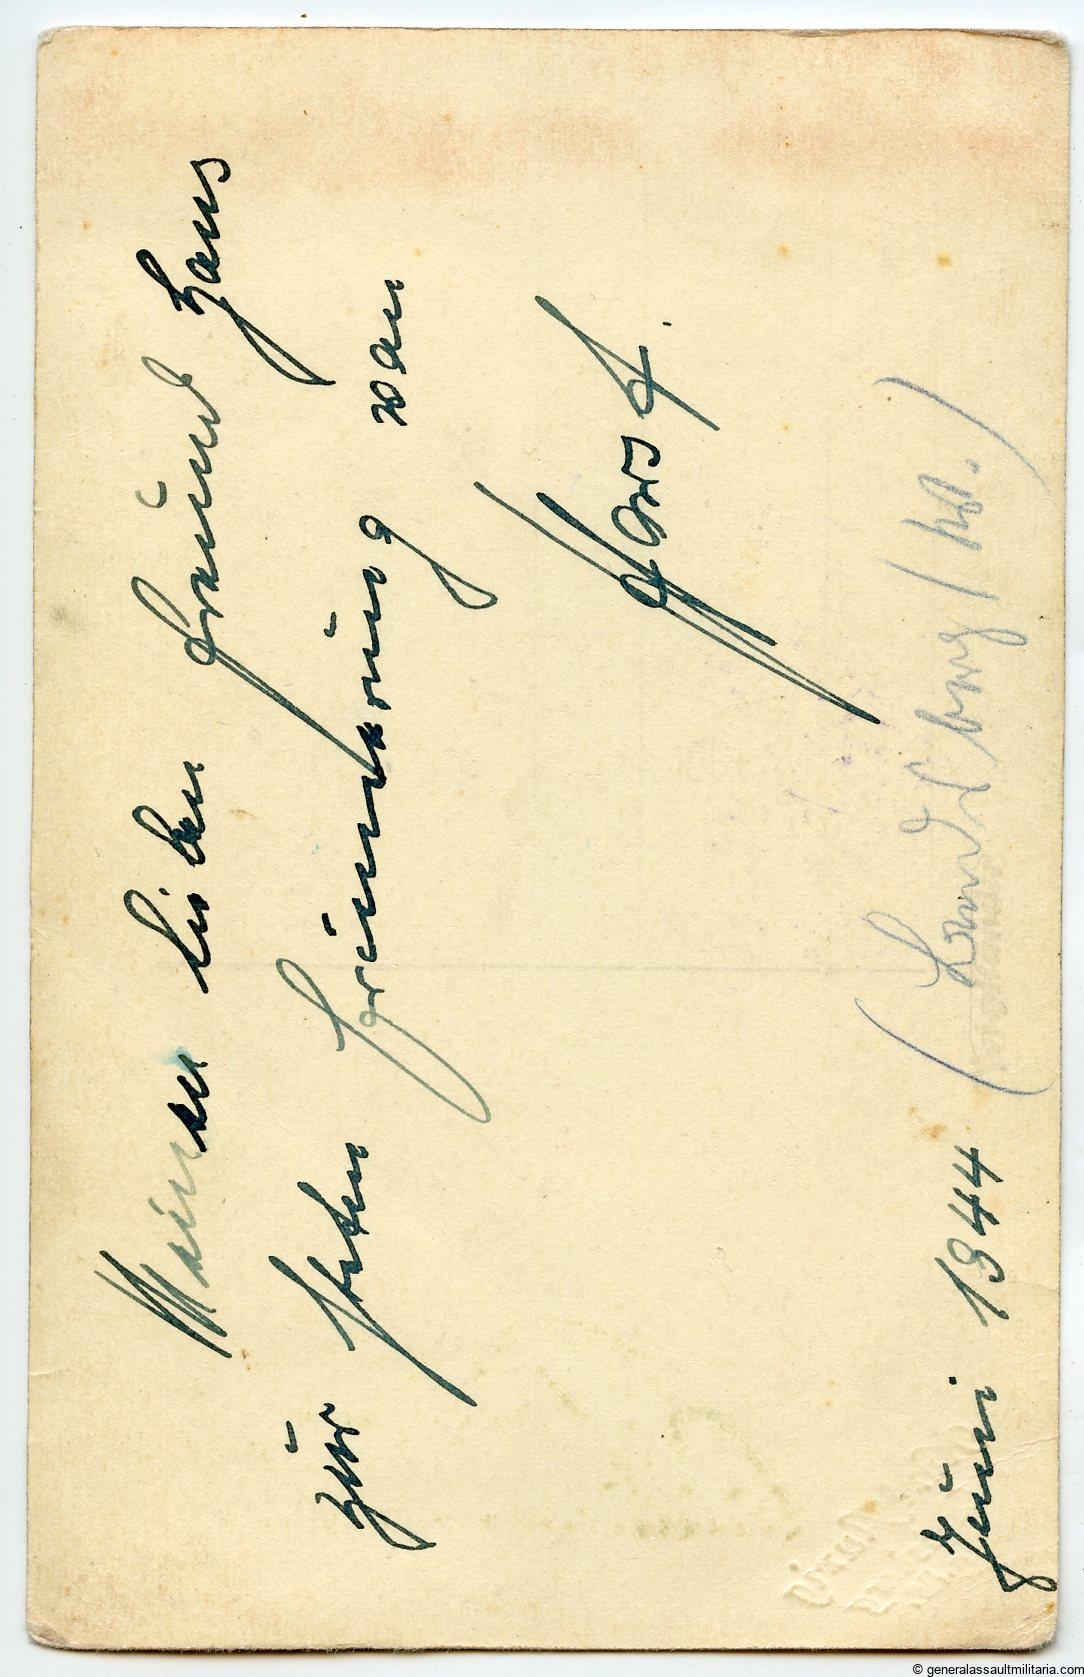 Meinem lieben Freund Hans
zur steten Erinnerung von
Horst.
Juni 1944 (Landsberg / W.)
© generalassaultmilitaria.com